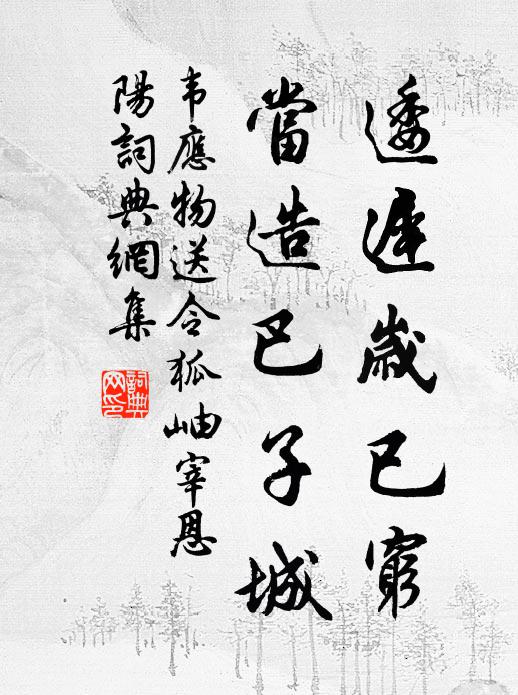 逶遲歲已窮
當造巴子城
韦應物送令狐岫宰恩
陽詞典網集
詞典
网印